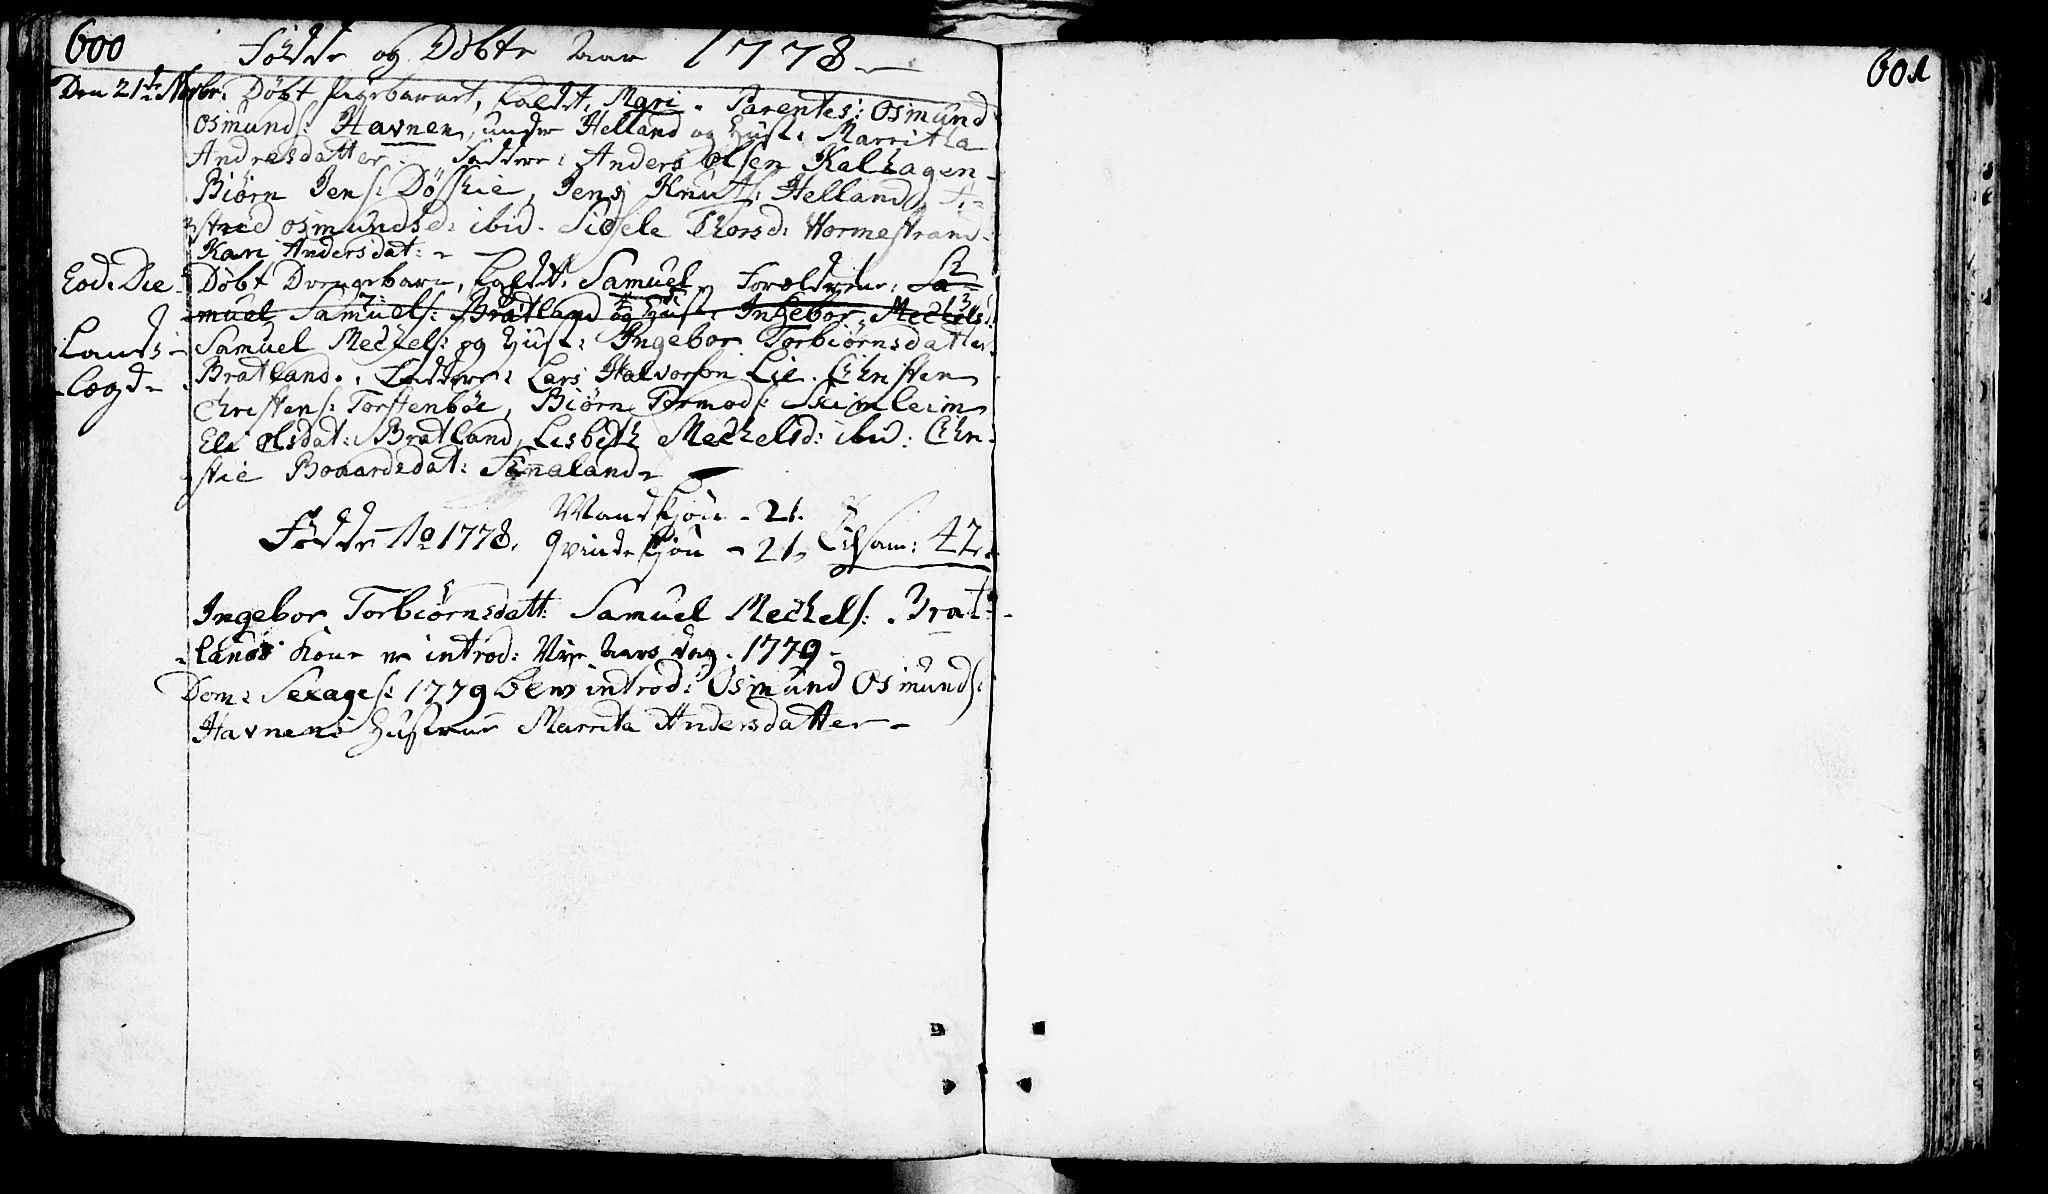 600 Födde og Döbte Aar 1778
Den 21de Novbr: Döbt Pigebarnet, kaldet, Mari. Parentes: Osmund
Osmunds: Havnen, under Helland og Hust: Marritha
Andresdatter. Faddere: Anders Olsen Kalhagen
Biörn Jens: Döskie, Jens Knuts: Helland, A-
strid Osmundsd: ibid. Sidsele Thorsd: Hormestrand
Kari Andersdat:
Eod: Die Döbt Drengebarn, kaldet, Samuel, Forældrene: Sa-
muel Samuels: Bratland og Hust: Ingebor Mechels:
Lauds- Samuel Mechels: og Hust: Ingebor Torbiörnsdatter
lægd- Bratland. Faddere: Lars Halvorson Lie. Christen
Christens: Torstenböe, Biörn Tormods:
Eli Olsdat: Bratland, Lisbeth Mechelsd: ibid: Chri-
stie
Födde Ao 1778. Mandkjön - 21.
Qvindekjön - 21. Tilsam: 42.
Ingebor Torbiörnsdatt: Samuel Mechels: Brat-
lands Kone er introd: Nye Aars dag. 1779
Dom: Sexages: 1779 blev introd: Osmund Osmunds:
Havnens Hustrue Marrita Andersdatter
601